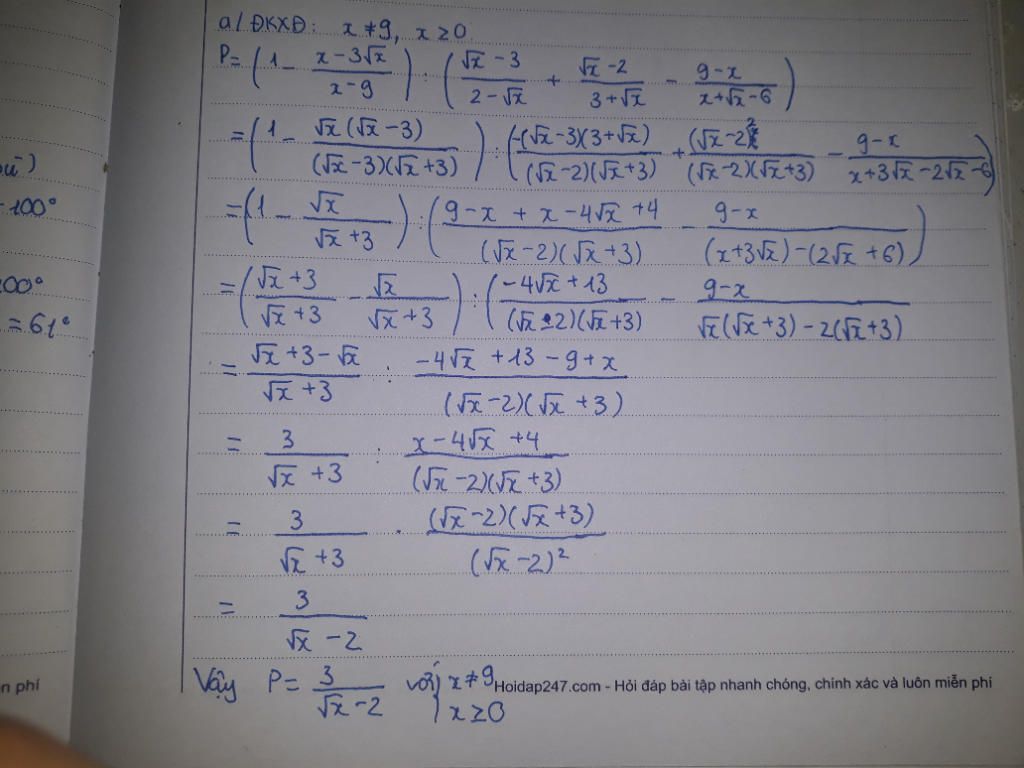 a/ ĐKXĐ: x ≠ 9, x ≥ 0
P = (1 - (x - 3√x)/(x - 9)) : ((√x - 3)/(2 - √x) + (√x - 2)/(3 + √x) - (9 - x)/(x + √x - 6))
= (1 - (√x(√x - 3))/((√x - 3)(√x + 3))) : ((-(√x - 3)(3 + √x))/((√x - 2)(√x + 3)) + ((√x - 2)²)/((√x - 2)(√x + 3)) - (9 - x)/(x + 3√x - 2√x - 6))
= (1 - √x/(√x + 3)) : ((9 - x + x - 4√x + 4)/((√x - 2)(√x + 3)) - (9 - x)/((x + 3√x) - (2√x + 6)))
= ((√x + 3)/(√x + 3) - √x/(√x + 3)) : ((-4√x + 13)/((√x - 2)(√x + 3)) - (9 - x)/(√x(√x + 3) - 2(√x + 3)))
= (√x + 3 - √x)/(√x + 3) : (-4√x + 13 - 9 + x)/((√x - 2)(√x + 3))
= 3/(√x + 3) : (x - 4√x + 4)/((√x - 2)(√x + 3))
= 3/(√x + 3) . ((√x - 2)(√x + 3))/((√x - 2)²)
= 3/(√x - 2)
Vậy P = 3/(√x - 2) với { x ≠ 9
x ≥ 0
Hoidap247.com - Hỏi đáp bài tập nhanh chóng, chính xác và luôn miễn phí
100°
00°
= 61°
n phí